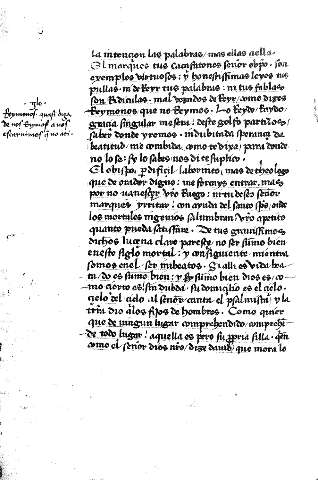 la intencion las palabras / mas ellas a ella.
El marques tus cuestiones señor obpo. son
exemplos virtuosos: y honestissimas leyes tus
pullas. ni de Reyr tus palabras: ni tus fablas
son Ridiculas. mal dignidos de Reyr / como dizes
Reymonos que no Remos. Lo
gracia singular me sera: deste golfo partidos /
saber donde yremos. indubitada sperança de
beatitud me combida. como te dixe / para donde
no lo se: sy lo sabes nos di te suplico.
El obispo. pdificil laborinto, mas de theologo
que de orador digno: me fuerças entrar, mas
por no vanescer vro Ruego: ni tu deseo señor
marques yrritar: con ayuda del santo spu. onde
los mortales ingenios salumbran: vro apetito
quanto pueda satisfare. De tus grauissimos
dichos lucena claro paresçe no ser sumo bien
en este siglo mortal: y consiguiente mientra
somos en el ser inbeatos. Si alli es vida bea
ta do es sumo bien: y sy sumo bien dios es. co
mo cierto es sin dubda. su domicilio es el cielo.
cielo del cielo al señor. canta el psalmista y la
trra dio alos fijos de hombres. Como quier
que de ningun lugar comprehendido comprehen
de todo lugar: aquella es pero su ppria silla. 
como el señor dios nro / dize dauid que mora lo
glo.
Reymonos. quasi diga
de nos Reymos a nos